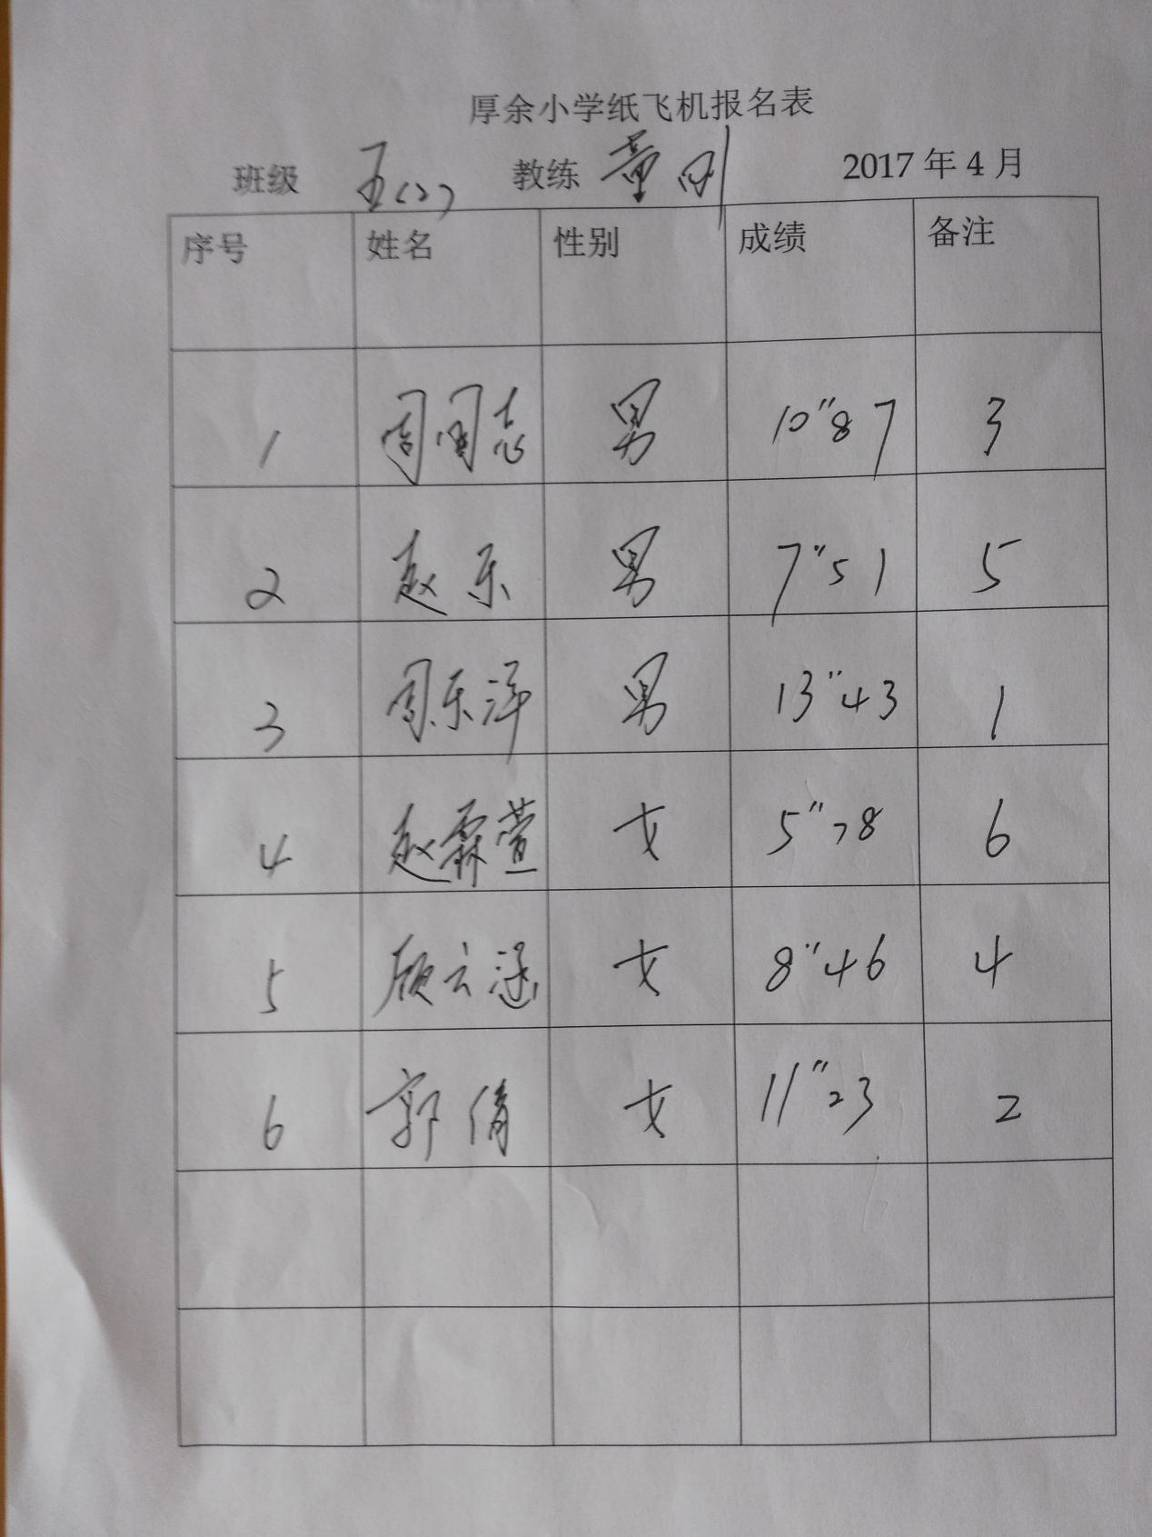 厚余小学纸飞机报名表
班级 五(2) 教练 童刚 2017年4月
序号 姓名 性别 成绩 备注
1 周国志 男 10"87 3
2 赵乐 男 7"51 5
3 周乐洋 男 13"43 1
4 赵霖萱 女 5"78 6
5 顾云涵 女 8"46 4
6 郭倩 女 11"23 2